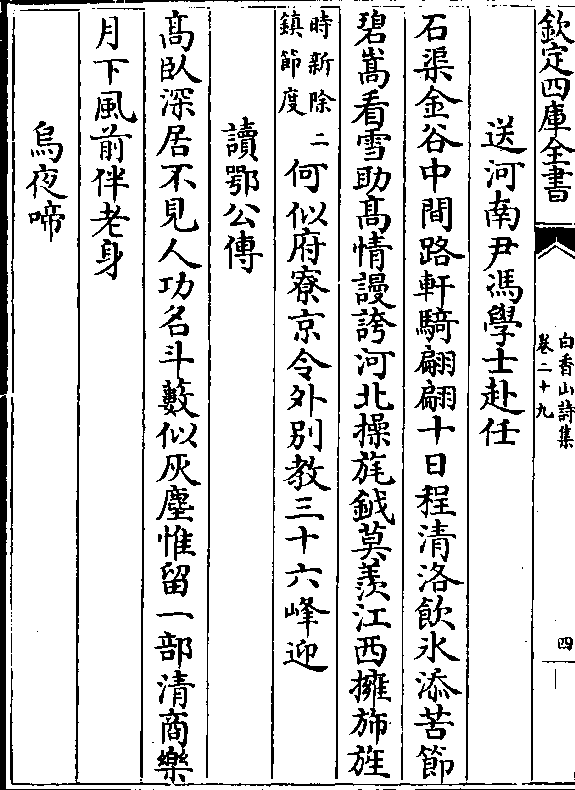 欽定四庫全書
白香山詩集
卷二十九
四
送河南尹馮學士赴任
石渠金谷中間路軒騎翩翩十日程清洛飲氷添苦節
碧嵩看雪助髙情謾誇河北操旄鉞莫羡江西擁斾旌
時新除二
鎮節度
何似府寮京令外别教三十六峰迎
讀鄂公傳
髙臥深居不見人功名斗藪似灰塵惟留一部清商樂
月下風前伴老身
烏夜啼